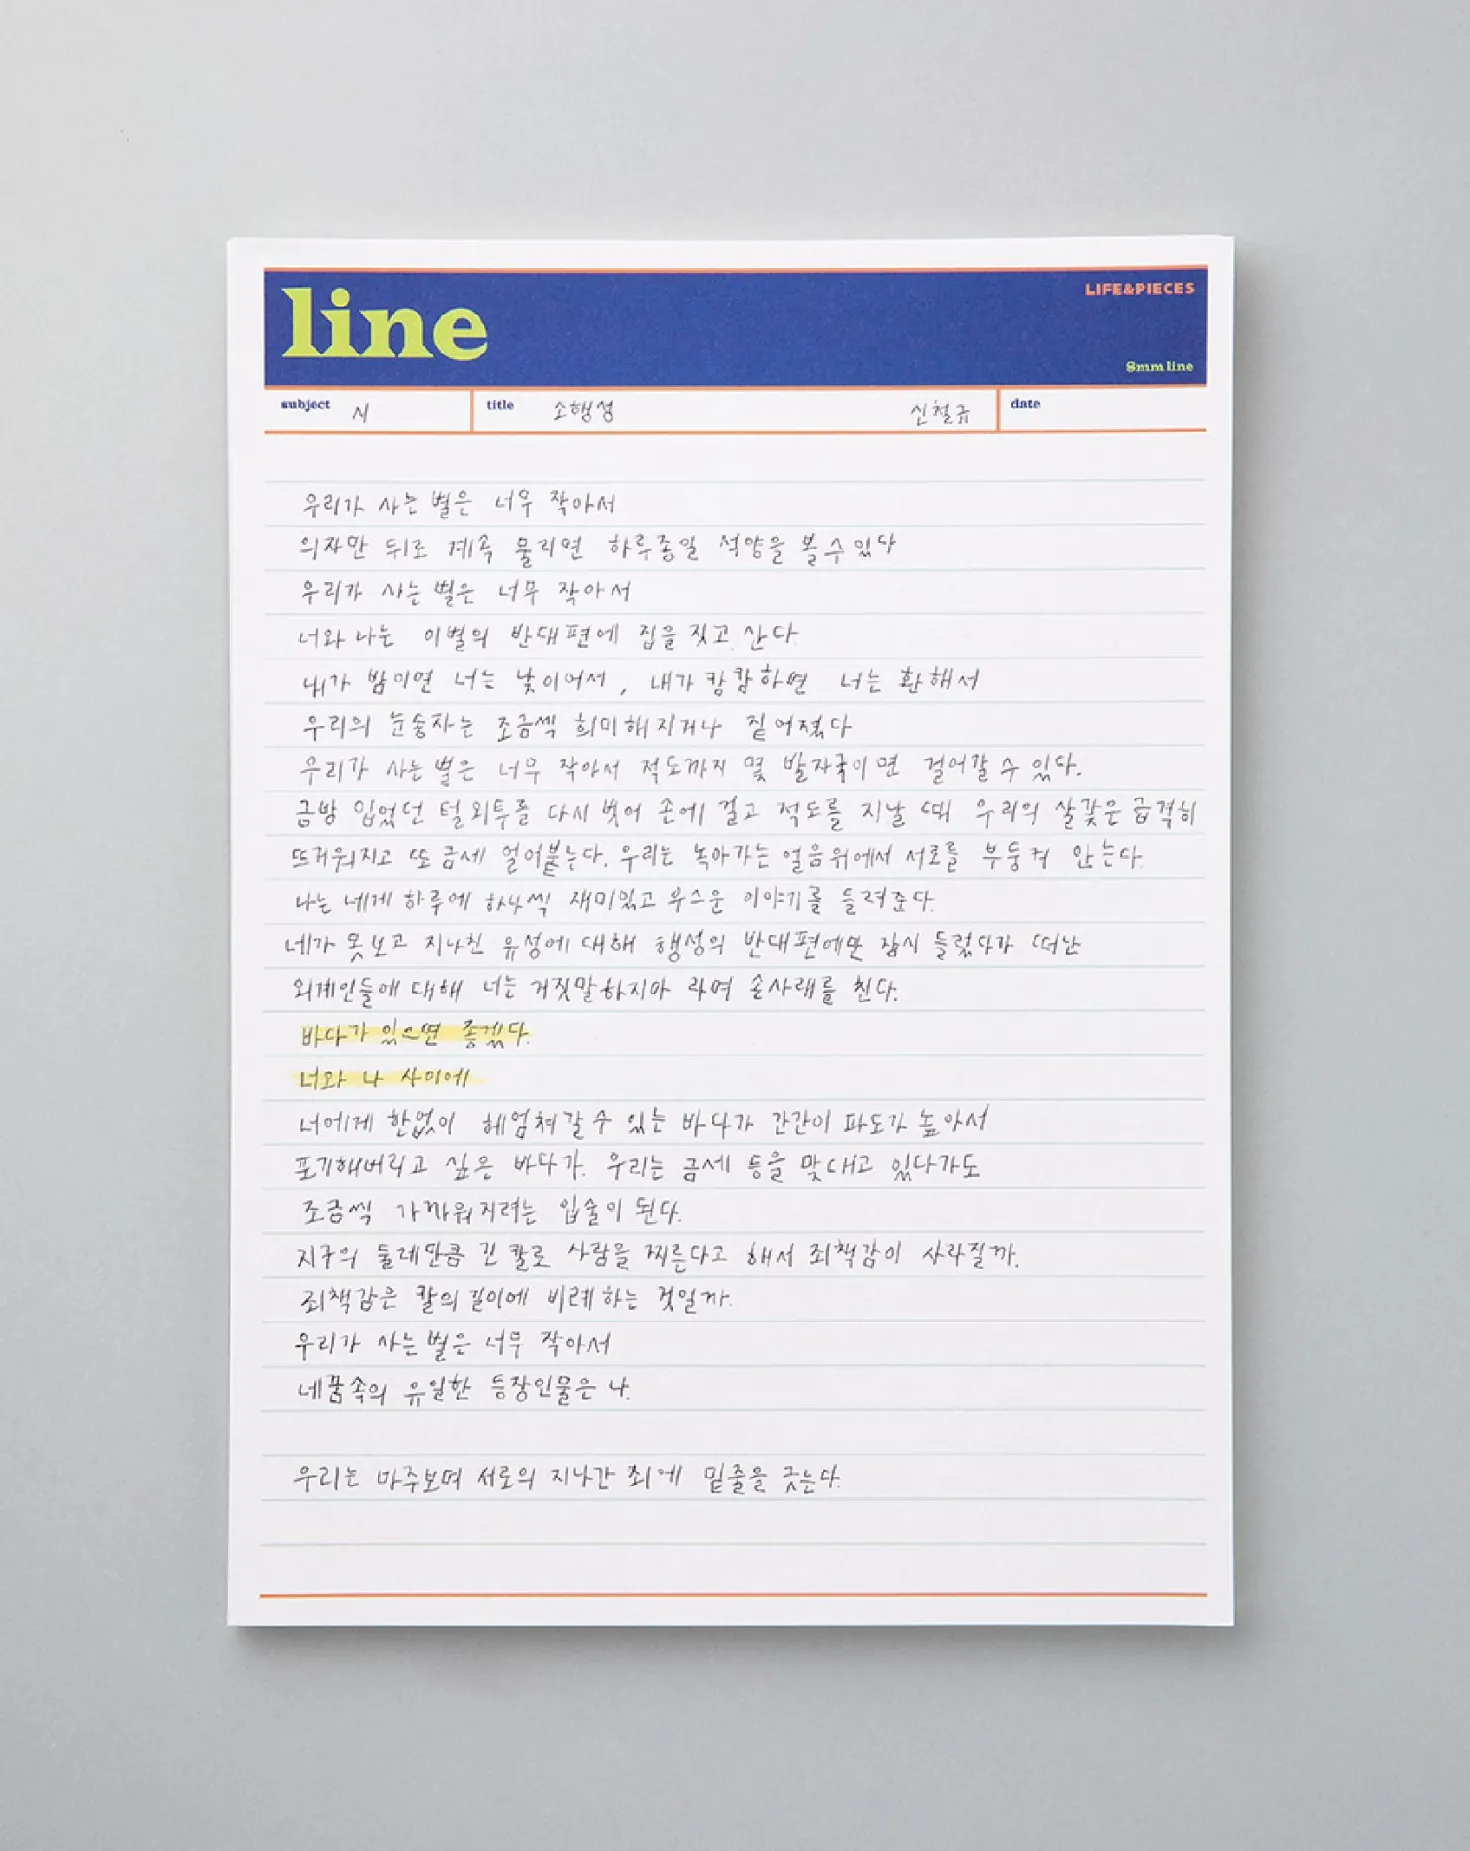 line
LIFE&PIECES
8mm line
subject 시 title 소행성 신철규 date
우리가 사는 별은 너무 작아서
의자만 뒤로 계속 물리면 하루종일 석양을 볼 수 있다
우리가 사는 별은 너무 작아서
너와 나는 이 별의 반대편에 집을 짓고 산다
내가 밤이면 너는 낮이어서, 내가 캄캄하면 너는 환해서
우리의 눈송자는 조금씩 희미해지거나 짙어졌다
우리가 사는 별은 너무 작아서 적도까지 몇 발자국이면 걸어갈 수 있다.
금방 입었던 털외투를 다시 벗어 손에 걸고 적도를 지날 때 우리의 살갗은 급격히
뜨거워지고 또 금세 얼어붙는다. 우리는 녹아가는 얼음위에서 서로를 부둥켜 안는다.
나는 네게 하루에 하나씩 재미있고 우스운 이야기를 들려준다.
네가 못보고 지나친 유성에 대해 행성의 반대편에만 잠시 들렀다가 떠난
외계인들에 대해 너는 거짓말하지마 라며 손사래를 친다.
바다가 있으면 좋겠다.
너와 나 사이에
너에게 한없이 헤엄쳐갈 수 있는 바다가 간간이 파도가 높아서
포기해버리고 싶은 바다가. 우리는 금세 등을 맞대고 있다가도
조금씩 가까워지려는 입술이 된다.
지구의 둘레만큼 긴 칼로 사람을 찌른다고 해서 죄책감이 사라질까.
죄책감은 칼의 길이에 비례하는 것일까.
우리가 사는 별은 너무 작아서
네 꿈속의 유일한 등장인물은 나.
우리는 마주보며 서로의 지나간 죄에 밑줄을 긋는다.